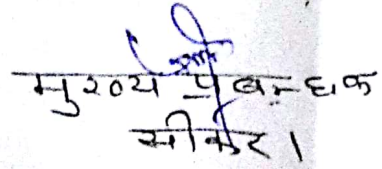 मुख्य प्रबन्धक
सीकर।